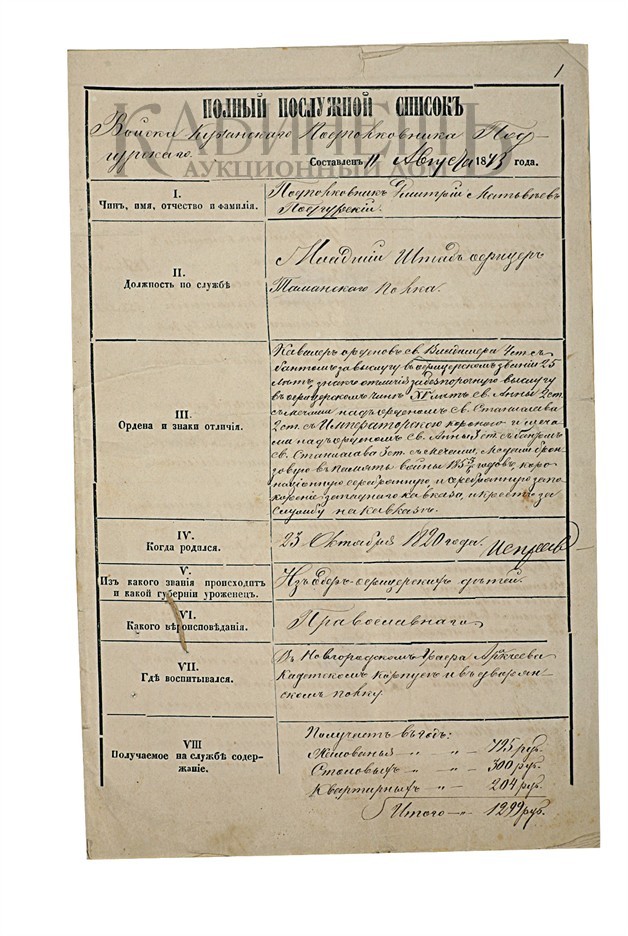 1
ПОЛНЫЙ ПОСЛУЖНОЙ СПИСОКЪ
КАБИНЕТЪ
АУКЦИОННЫЙ ДОМ
Войска Кубанскаго Подполковника Под-
гурскаго.
Составленъ 11 Августа 1873 года.
I.
Чинъ, имя, отчество и фамилія.
Подполковникъ Дмитрій Матвѣевъ
Подгурскій.
II.
Должность по службѣ
Младшій Штабъ офицеръ
Таманскаго полка.
III.
Ордена и знаки отличія.
Кавалеръ орденовъ св. Владиміра 4 ст. съ
бантомъ за выслугу въ офицерскомъ званіи 25
лѣтъ знакъ отличія за безпорочную выслугу
въ офицерскомъ чинѣ XV лѣтъ св. Анны 2 ст.
съ мечами надъ орденомъ Св. Станислава
2 ст. съ Императорскою короною и меча
ми надъ орденомъ Св. Анны 3 ст. съ бантомъ
св. Станислава 3 ст. съ мечами, медали брон
зовую въ память войны 1853/6 годовъ, коро
національную серебряную и серебряную за по
кореніе западнаго кавказа, и крестъ за
службу на кавказѣ.
IV.
Когда родился.
23 Октября 1820 года.
V.
Изъ какого званія происходитъ
и какой губерніи уроженецъ.
Изъ оберъ-офицерскихъ дѣтей.
VI.
Какого вѣроисповѣданія.
Православнаго
VII.
Гдѣ воспитывался.
Въ Новгородскомъ Графа Аракчеева
Кадетскомъ Корпусѣ и въ дворян-
скомъ полку
VIII
Получаемое на службѣ содер-
жаніе.
Получаетъ въ годъ:
Жалованья — " " — 795 руб.
Столовыхъ — " " — 300 руб.
Квартирныхъ — " " — 204 руб.
Итого — " — 1299 руб.